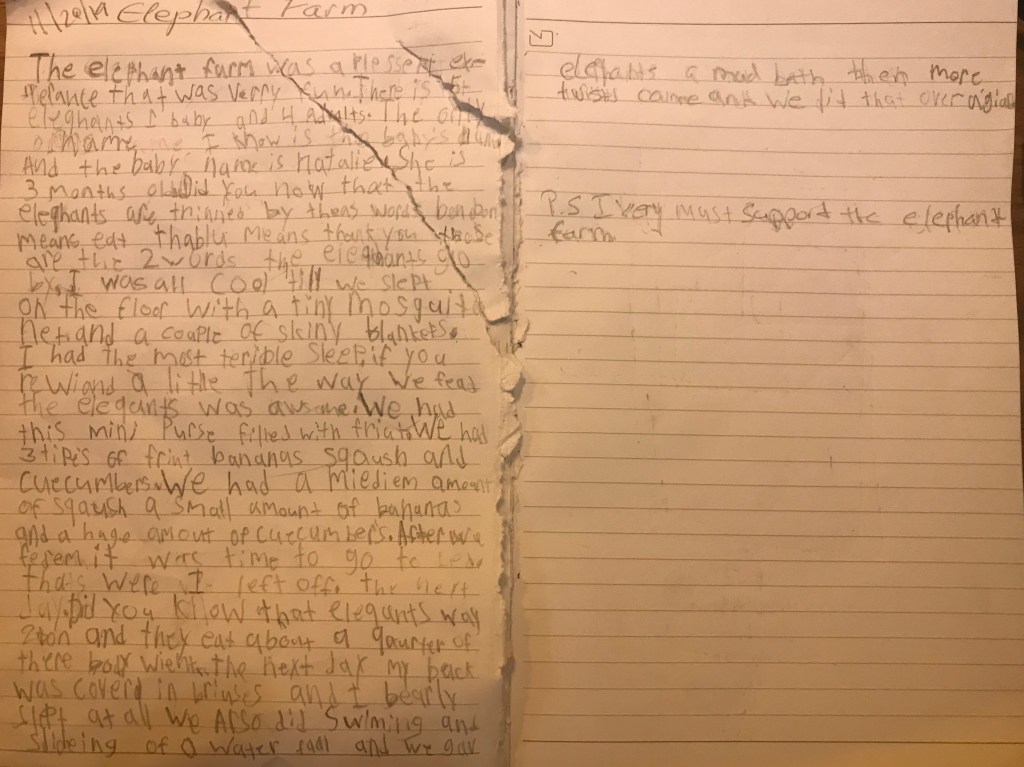 11/20/19 Elephant Farm
The elephant farm was a plessent exe-
rieance that was verry fun. There is
eleghants 1 baby and 4 adults. The only
name I know is the baby's name
And the baby name is natalie. She is
3 months old. Did you now that the
eleghants are trinned by theas words bonbon
means eat thablu means thank you those
are the 2 words the eleghants go
by. I was all cool till we slept
on the floor with a tiny mosquito
net and a couple of skiny blankets.
I had the most terible sleep. if you
rewiand a little The way we fead
the elegants was awsome. We had
this mini purse filled with We had
3 tipes of friut bananas sqaush and
cuecumbers. We had a miediem amount
of sqaush a small amount of bananas
and a hage amout of cuecumbers. After we
it was time to go to
thats were I left off. the next
day. Did you know that elegants way
2ton and they eat about a qaurter of
there body wieht. the next day my back
was coverd in briuses and I bearly
slept at all we Also did swiming and
slideing of a water and we gav
elefants a mud bath then more
came and we did that over agian
P.S I very must support the elephant
farm